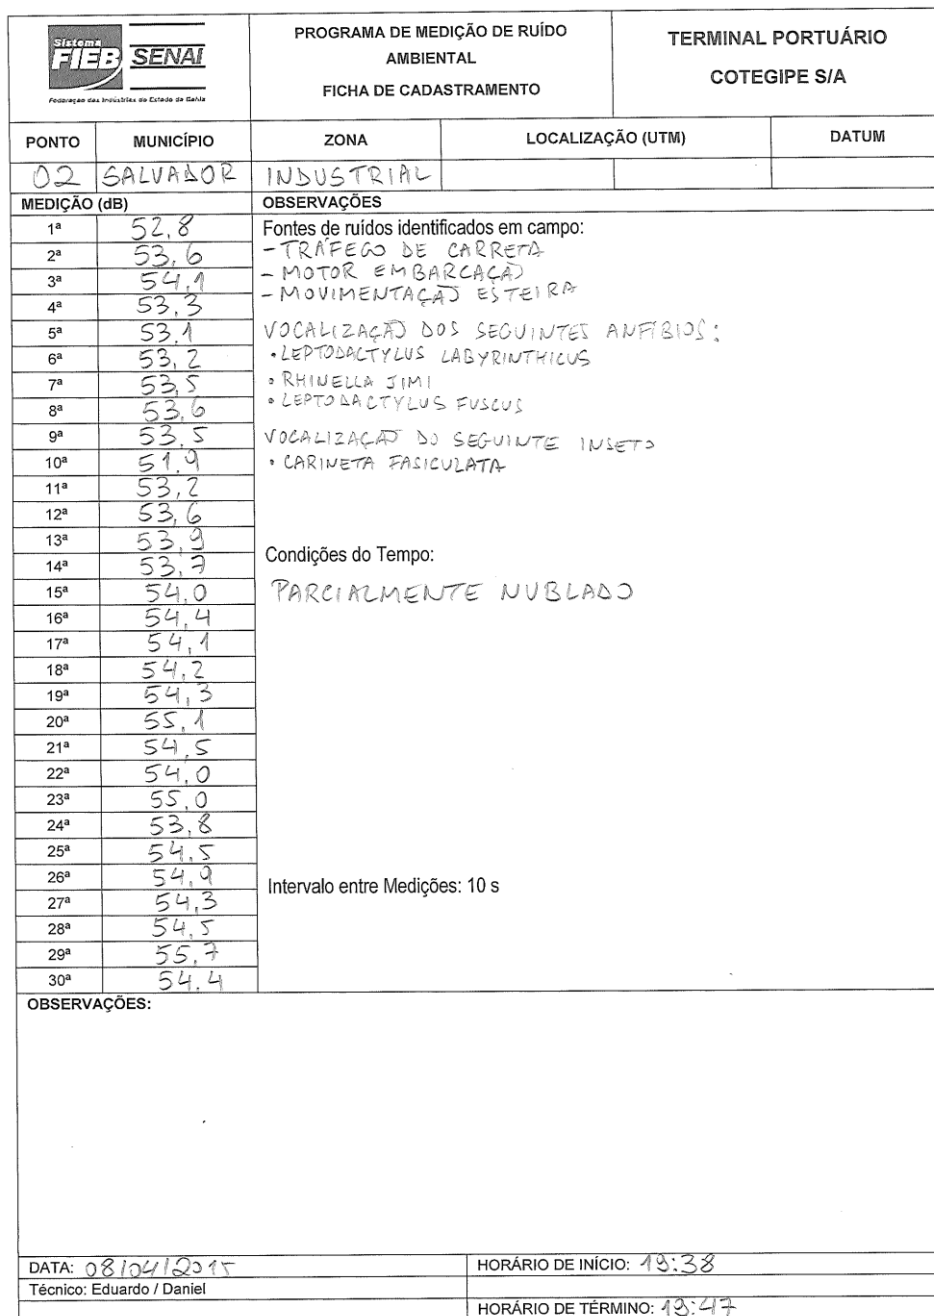 Sistema
FIEB SENAI
Federação das Indústrias do Estado da Bahia
PROGRAMA DE MEDIÇÃO DE RUÍDO
AMBIENTAL
FICHA DE CADASTRAMENTO
TERMINAL PORTUÁRIO
COTEGIPE S/A
PONTO MUNICÍPIO ZONA LOCALIZAÇÃO (UTM) DATUM
02 SALVADOR INDUSTRIAL
MEDIÇÃO (dB) OBSERVAÇÕES
1ª 52,8
2ª 53,6
3ª 54,1
4ª 53,3
5ª 53,1
6ª 53,2
7ª 53,5
8ª 53,6
9ª 53,5
10ª 51,9
11ª 53,2
12ª 53,6
13ª 53,9
14ª 53,7
15ª 54,0
16ª 54,4
17ª 54,1
18ª 54,2
19ª 54,3
20ª 55,1
21ª 54,5
22ª 54,0
23ª 55,0
24ª 53,8
25ª 54,5
26ª 54,9
27ª 54,3
28ª 54,5
29ª 55,7
30ª 54.4
Fontes de ruídos identificados em campo:
- TRÁFEGO DE CARRETA
- MOTOR EMBARCAÇÃO
- MOVIMENTAÇÃO ESTEIRA
VOCALIZAÇÃO DOS SEGUINTES ANFÍBIOS:
• LEPTODACTYLUS LABYRINTHICUS
• RHINELLA JIMI
• LEPTODACTYLUS FUSCUS
VOCALIZAÇÃO DO SEGUINTE INSETO
• CARINETA FASICULATA
Condições do Tempo:
PARCIALMENTE NUBLADO
Intervalo entre Medições: 10 s
OBSERVAÇÕES:
DATA: 08/04/2015 HORÁRIO DE INÍCIO: 19:38
Técnico: Eduardo / Daniel
HORÁRIO DE TÉRMINO: 19:47